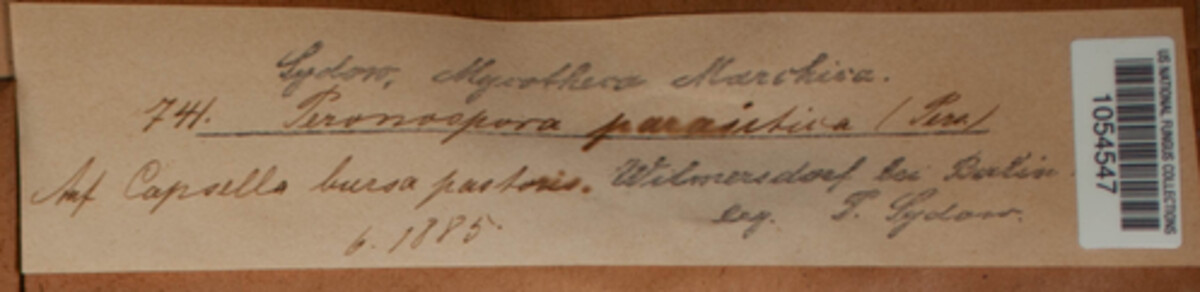 Sydow, Mycotheca Marchica.
741. Peronospora parasitica (Pers)
Auf Capsella bursa pastoris. Wilmersdorf bei Berlin.
leg. P. Sydow.
6. 1885.
US NATIONAL FUNGUS COLLECTIONS
1054547